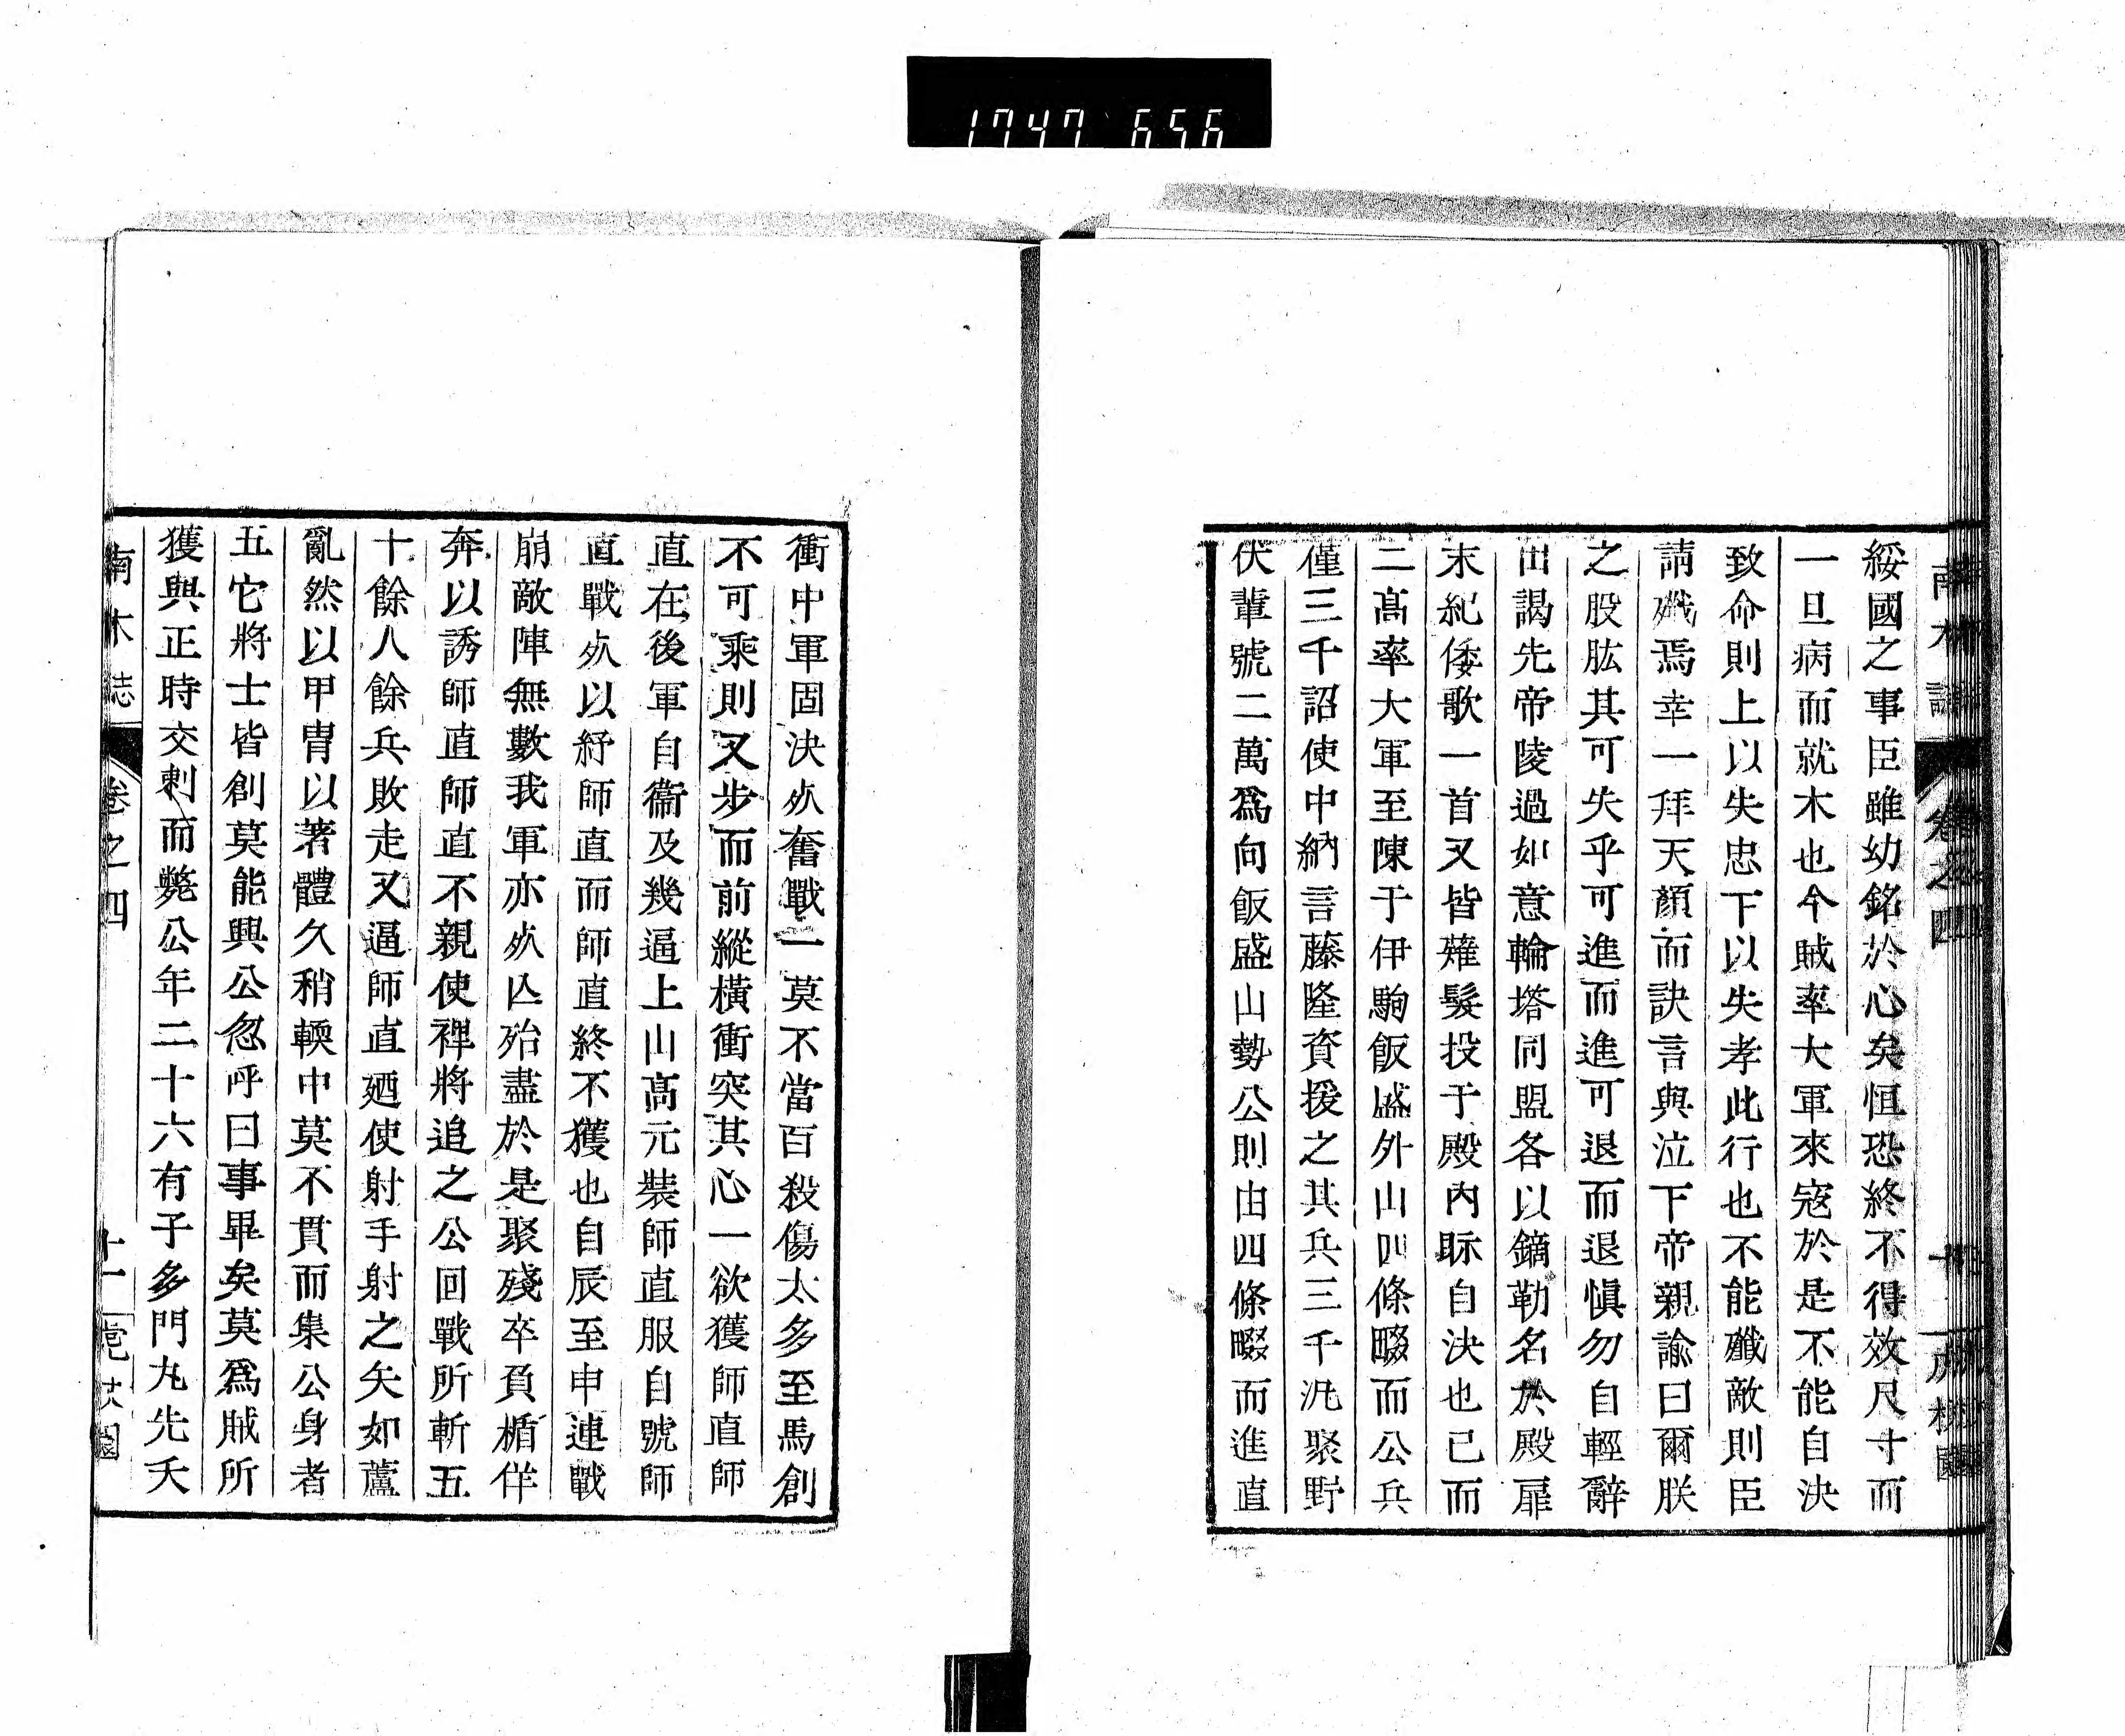 1747 656
南木誌
卷之四
綏國之事臣雖幼銘於心矣恒恐終不得效尺寸而
一旦病而就木也今賊率大軍來寇於是不能自決
致命則上以失忠下以失孝此行也不能殲敵則臣
請殲焉幸一拜天顏而訣言與泣下帝親諭曰爾朕
之股肱其可失乎可進而進可退而退愼勿自輕辭
出謁先帝陵過如意輪塔同盟各以鏑勒名於殿扉
末紀倭歌一首又皆薙髮投于殿內眎自決也已而
二高率大軍至陳于伊駒飯盛外山四條畷而公兵
僅三千詔使中納言藤隆資援之其兵三千汎聚野
伏輩號二萬爲向飯盛山勢公則由四條畷而進直
衝中軍固決死奮戰一莫不當百殺傷太多至馬創
不可乘則又步而前縱橫衝突其心一欲獲師直師
直在後軍自衞及幾逼上山高元裝師直服自號師
直戰死以紓師直而師直終不獲也自辰至申連戰
崩敵陣無數我軍亦死亾殆盡於是聚殘卒負楯佯
奔以誘師直師直不親使裨將追之公回戰所斬五
十餘人餘兵敗走又逼師直廼使射手射之矢如蘆
亂然以甲冑以著體久稍輭中莫不貫而集公身者
五它將士皆創莫能興公忽呼曰事畢矣莫爲賊所
獲與正時交刺而斃公年二十六有子多門丸先夭
南木誌
卷之四
十一